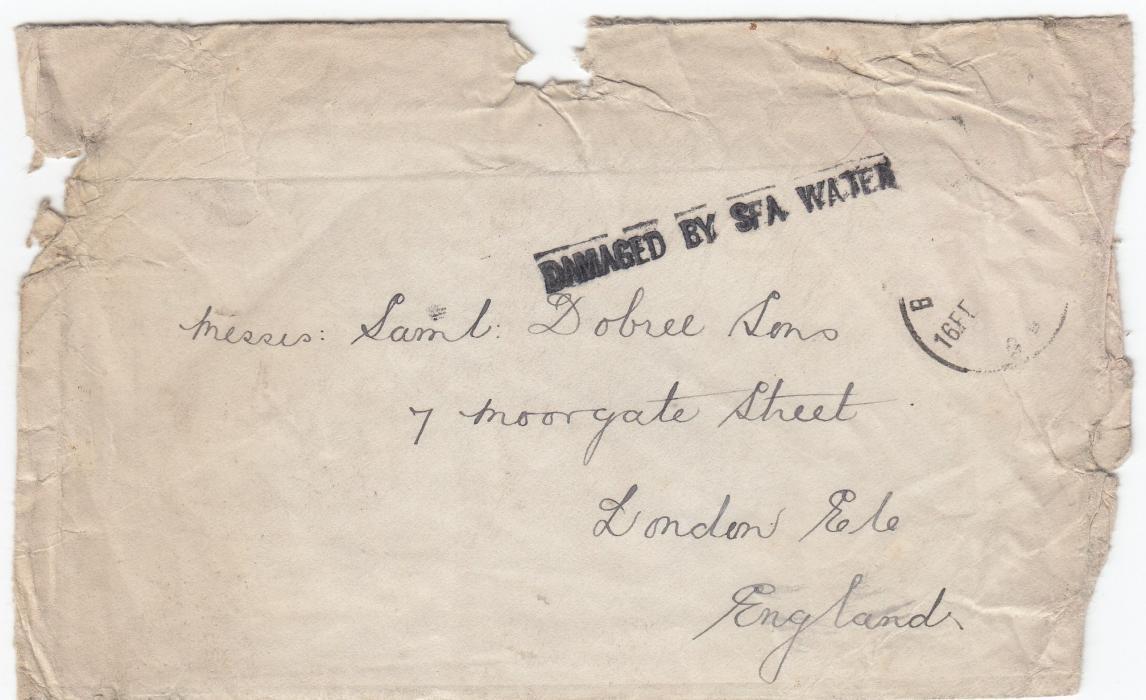 DAMAGED BY SEA WATER
Messrs: Saml: Dobree Sons
B
16 FE
7 Moorgate Street
London E C
England